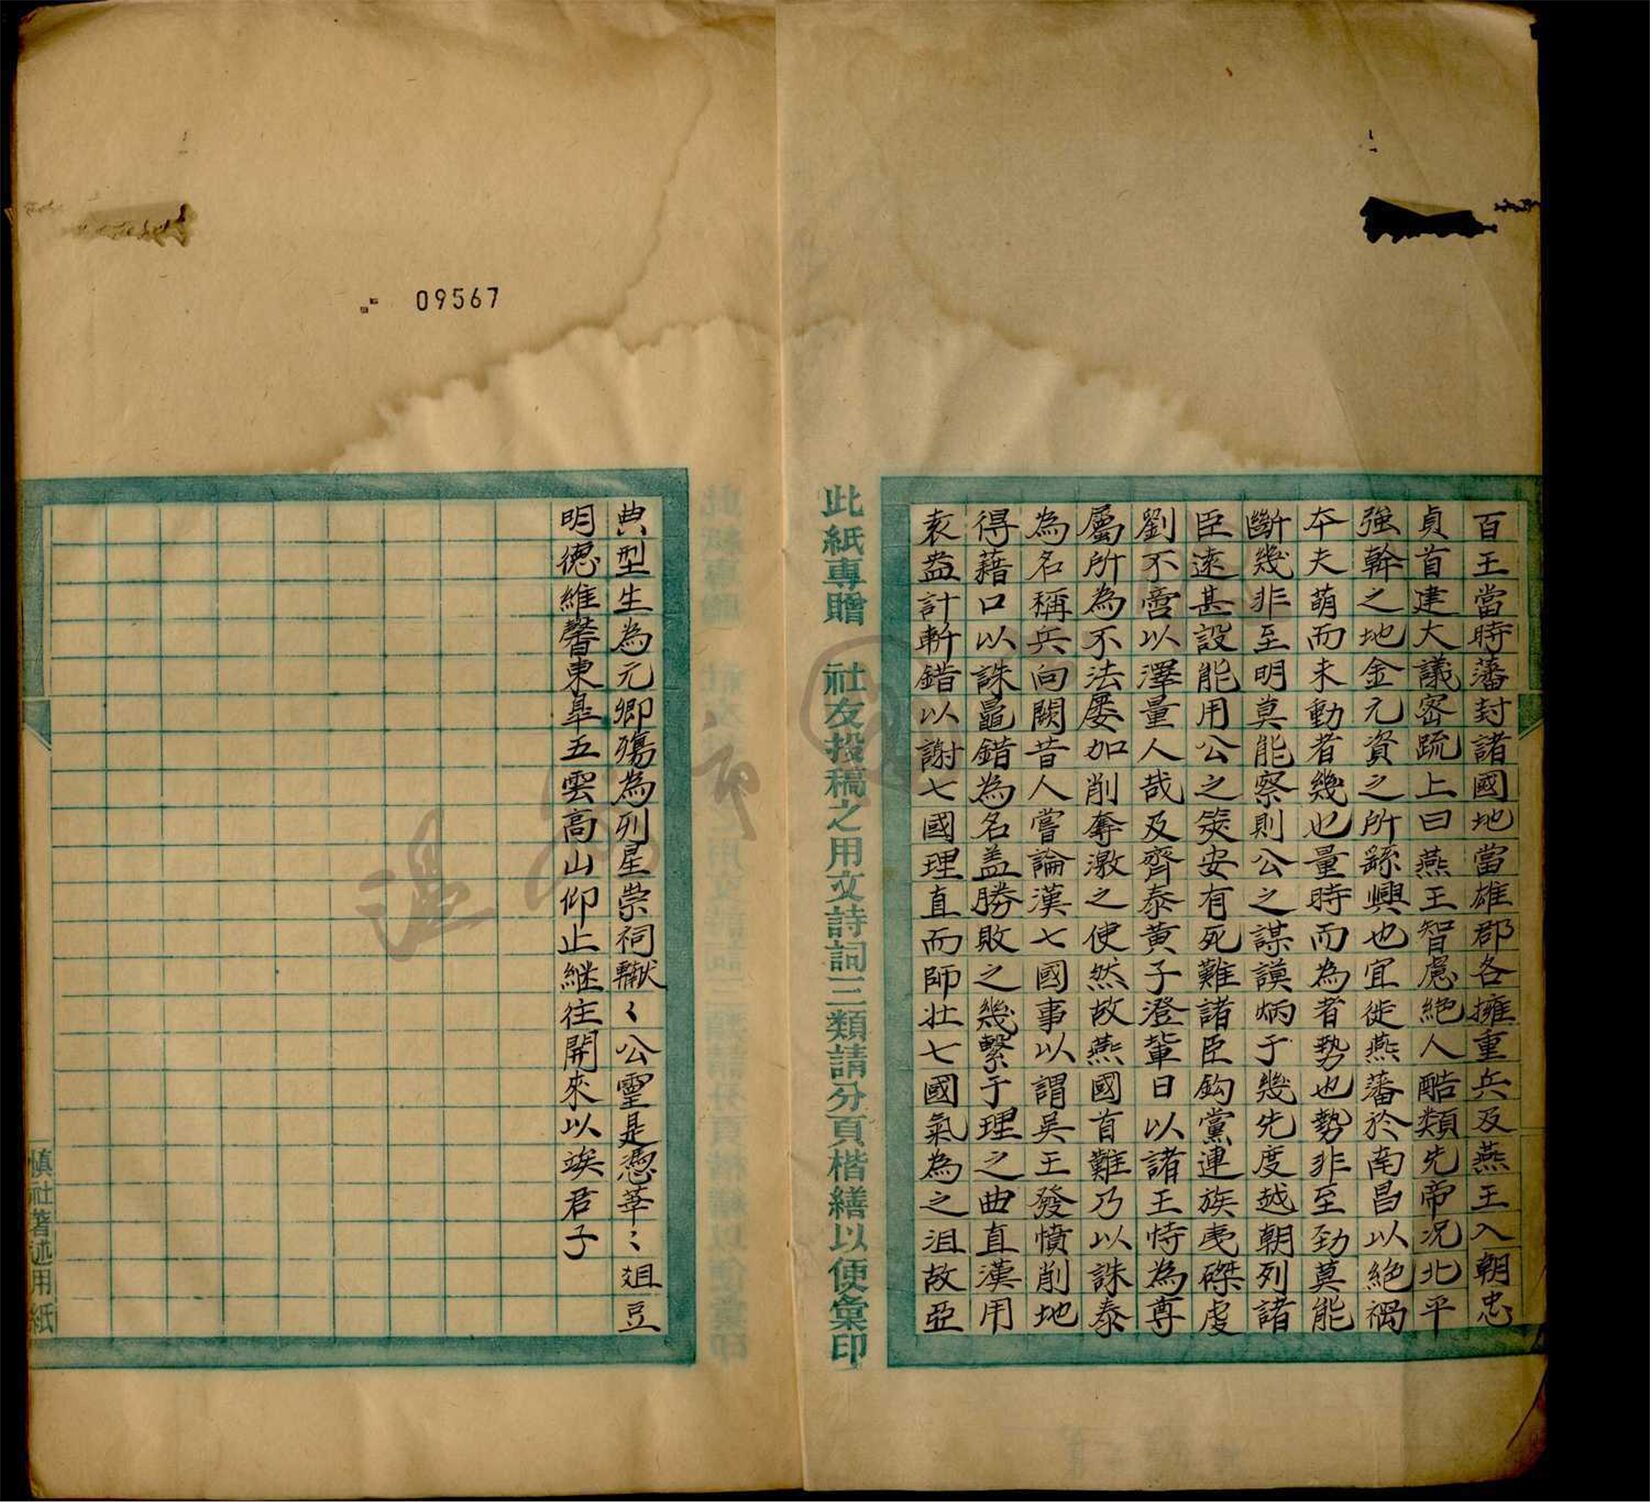 百王當時藩封諸國地當雄郡各擁重兵及燕王入朝忠
貞首建大議密疏上曰燕王智慮絕人酷類先帝況北平
強幹之地金元資之所繇興也宜徙燕藩於南昌以絕禍
夲夫萌而未動者幾也量時而為者勢也勢非至勁莫能
斷幾非至明莫能察則公之謀謨炳于幾先度越朝列諸
臣遠甚設能用公之筴安有死難諸臣鈎黨連族夷磔虔
劉不啻以澤量人哉及齊泰黃子澄輩日以諸王恃為尊
屬所為不法屡加削奪激之使然故燕國首難乃以誅泰
為名稱兵向闕昔人嘗論漢七國事以謂吴王發憤削地
得藉口以誅鼂錯為名盖勝敗之幾繫于理之曲直漢用
袁盎計斬錯以謝七國理直而師壮七國氣為之沮故亞
此紙專贈 社友投稿之用文詩詞三類請分頁楷繕以便彙印
典型生為元卿殤為列星崇祠轍〻公靈是憑莘〻俎豆
明德維馨東皐五雲高山仰止継往開來以竢君子
慎社著述用紙
09567